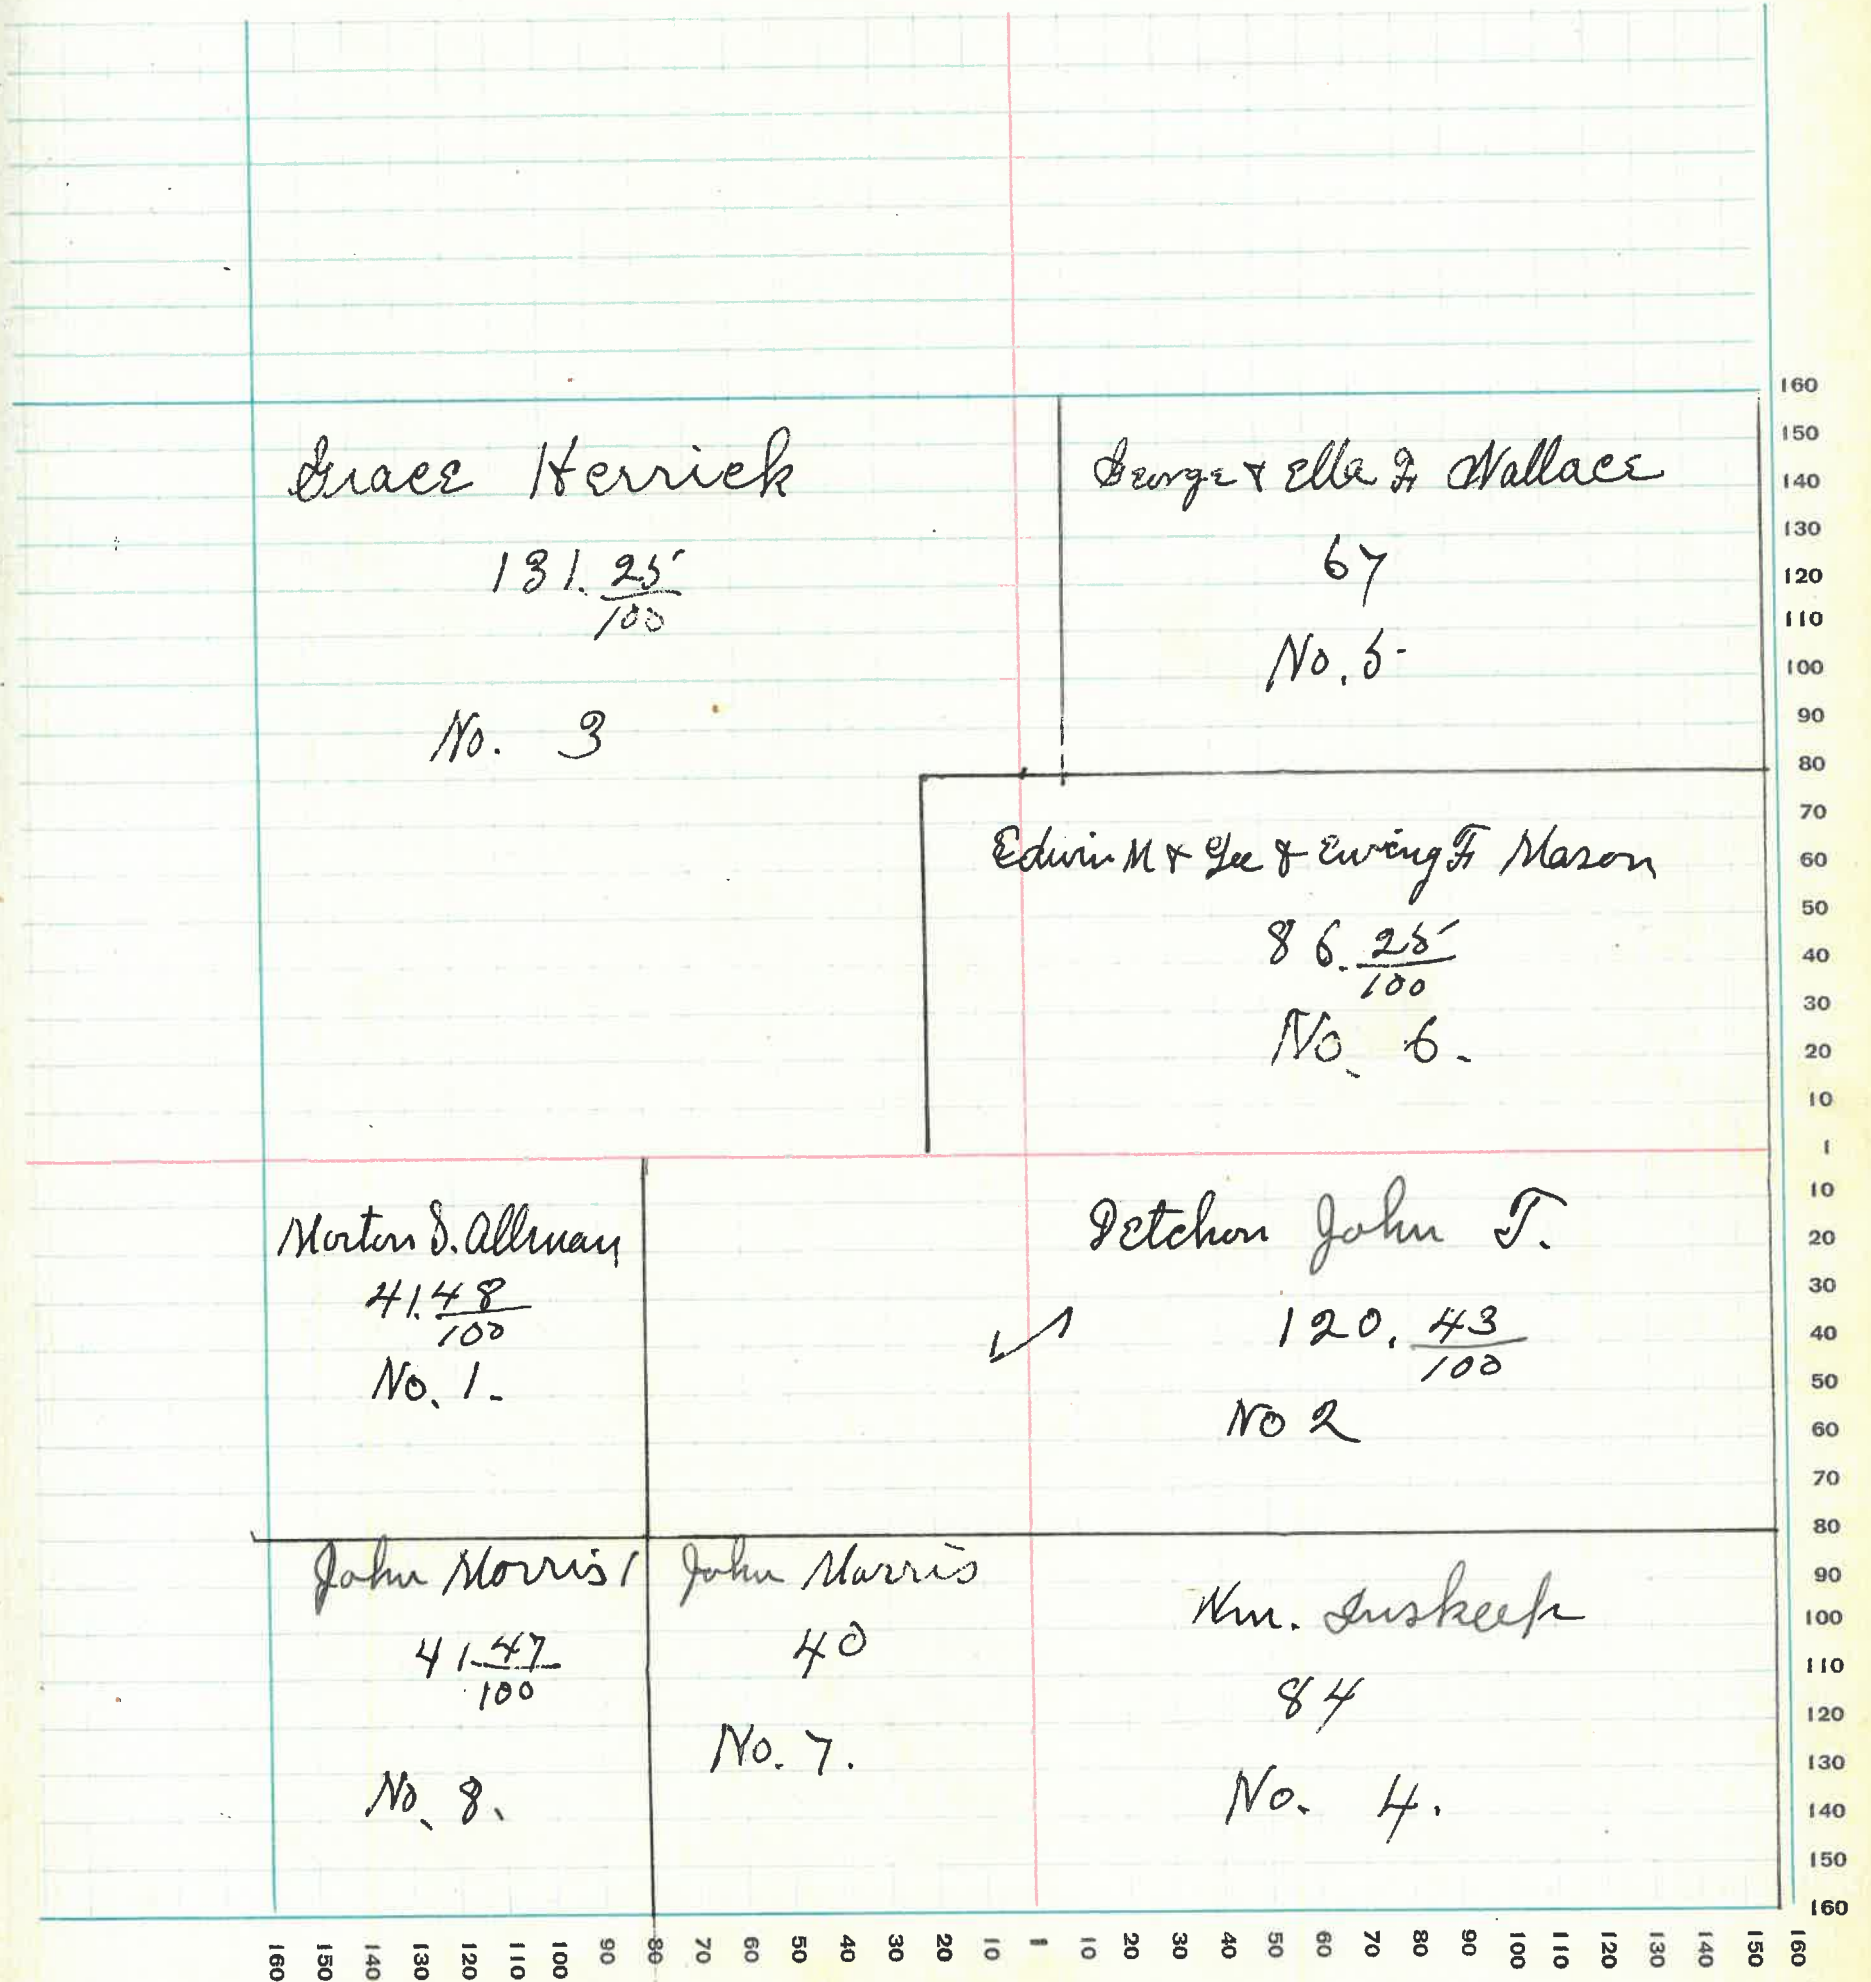 Grace Herrick
131. 25/100
No. 3
George & Ella F. Wallace
67
No. 5
Edwin M & Lee & Ewing F Mason
86. 25/100
No. 6.
Morton S. Allman
41. 48/100
No. 1.
Detchon John T.
120. 43/100
No 2
John Morris
41. 47/100
No. 8.
John Morris
40
No. 7.
Wm. Inskeep
84
No. 4.
160
150
140
130
120
110
100
90
80
70
60
50
40
30
20
10
1
10
20
30
40
50
60
70
80
90
100
110
120
130
140
150
160
160 150 140 130 120 110 100 90 80 70 60 50 40 30 20 10 1 10 20 30 40 50 60 70 80 90 100 110 120 130 140 150 160